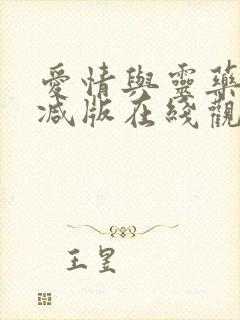 愛情與靈藥
減版在綫觀
王昱